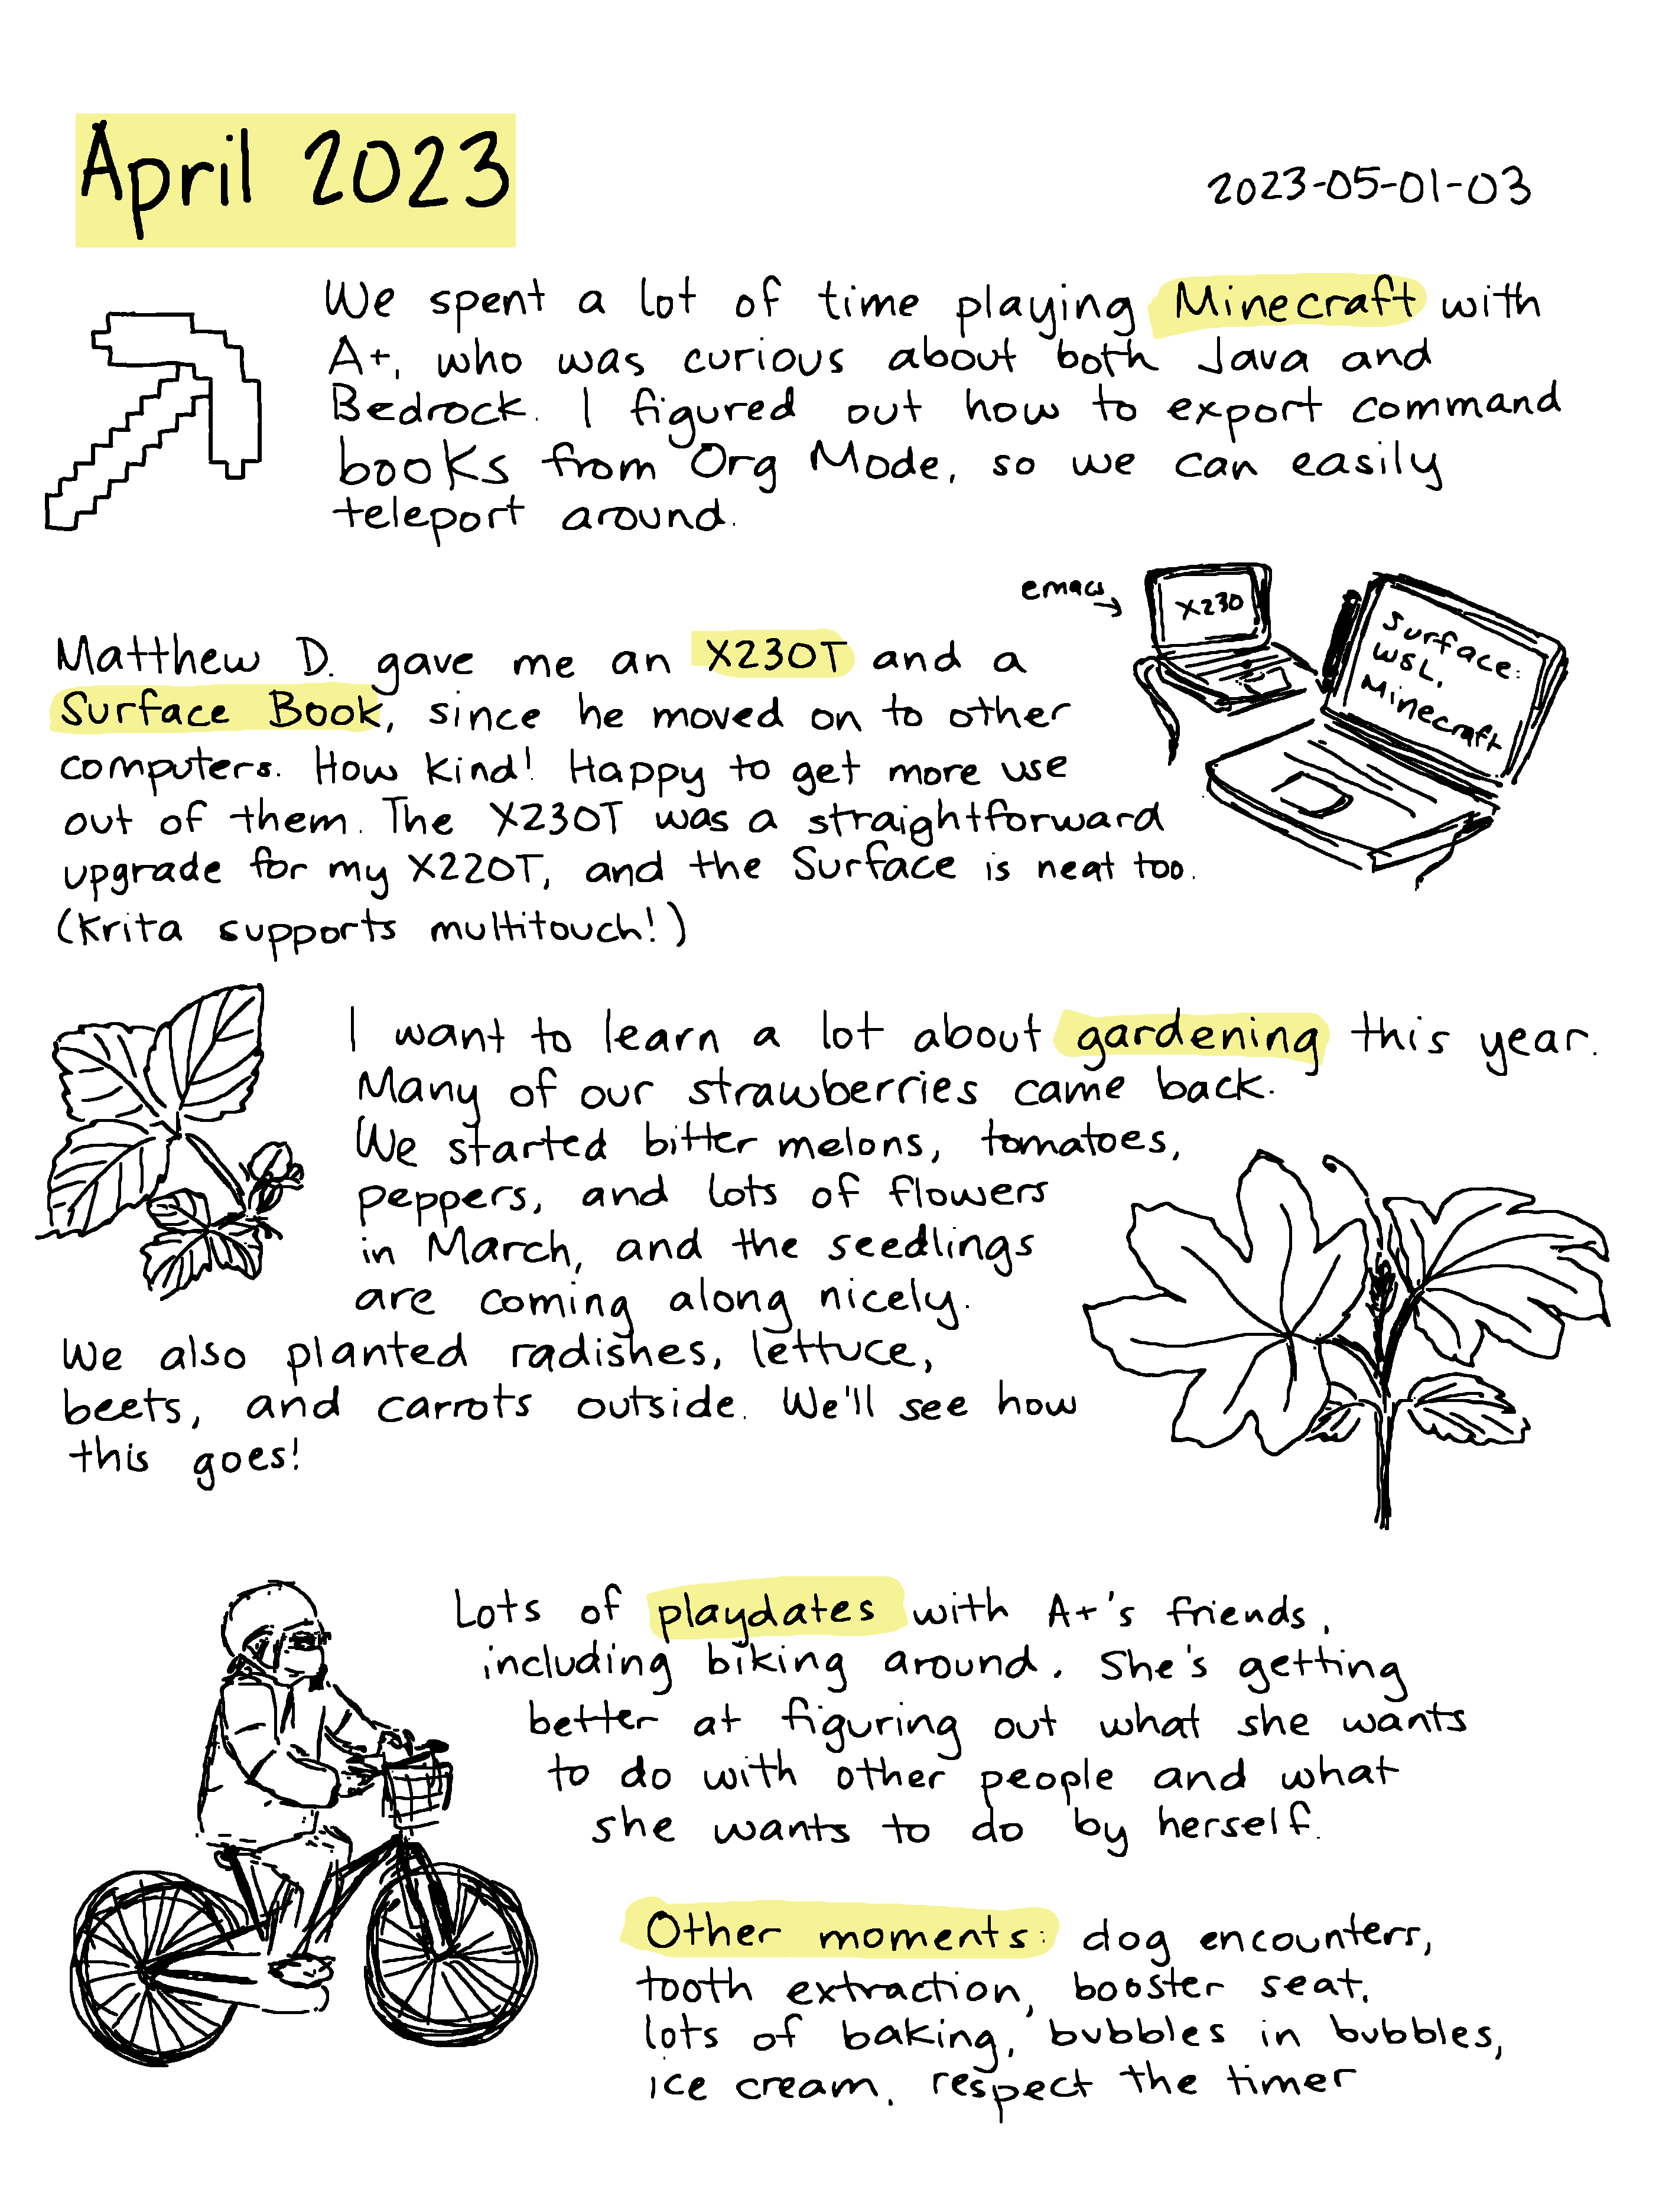 April 2023
2023-05-01-03
We spent a lot of time playing Minecraft with
A+, who was curious about both Java and
Bedrock. I figured out how to export command
books from Org Mode, so we can easily
teleport around.
emacs →
X230
Surface:
WSL,
Minecraft
Matthew D. gave me an X230T and a
Surface Book, since he moved on to other
computers. How kind! Happy to get more use
out of them. The X230T was a straightforward
upgrade for my X220T, and the Surface is neat too.
(Krita supports multitouch!)
I want to learn a lot about gardening this year.
Many of our strawberries came back.
We started bitter melons, tomatoes,
peppers, and lots of flowers
in March, and the seedlings
are coming along nicely.
We also planted radishes, lettuce,
beets, and carrots outside. We'll see how
this goes!
Lots of playdates with A+'s friends,
including biking around. She's getting
better at figuring out what she wants
to do with other people and what
she wants to do by herself.
Other moments: dog encounters,
tooth extraction, booster seat,
lots of baking, bubbles in bubbles,
ice cream, respect the timer